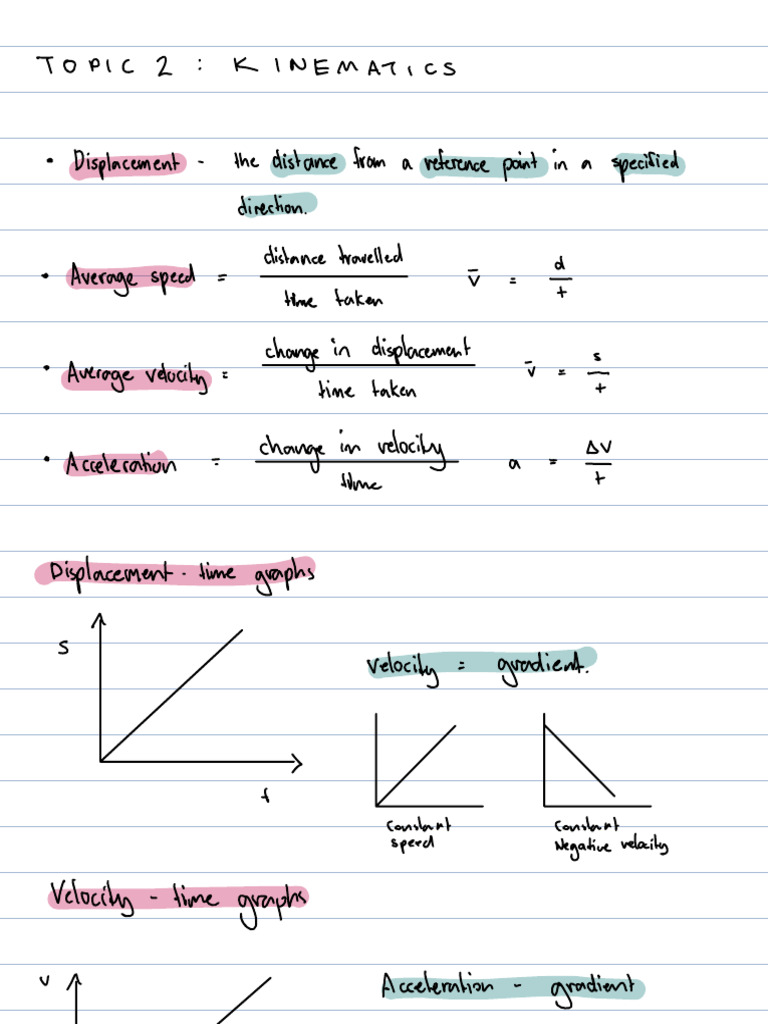 TOPIC 2 : KINEMATICS
• Displacement - the distance from a reference point in a specified
direction.
• Average speed = distance travelled / time taken v̄ = d / t
• Average velocity = change in displacement / time taken v̄ = s / t
• Acceleration = change in velocity / time a = ΔV / t
Displacement - time graphs
S
t
velocity = gradient.
Constant
speed
Constant
Negative velocity
Velocity - time graphs
v
Acceleration - gradient